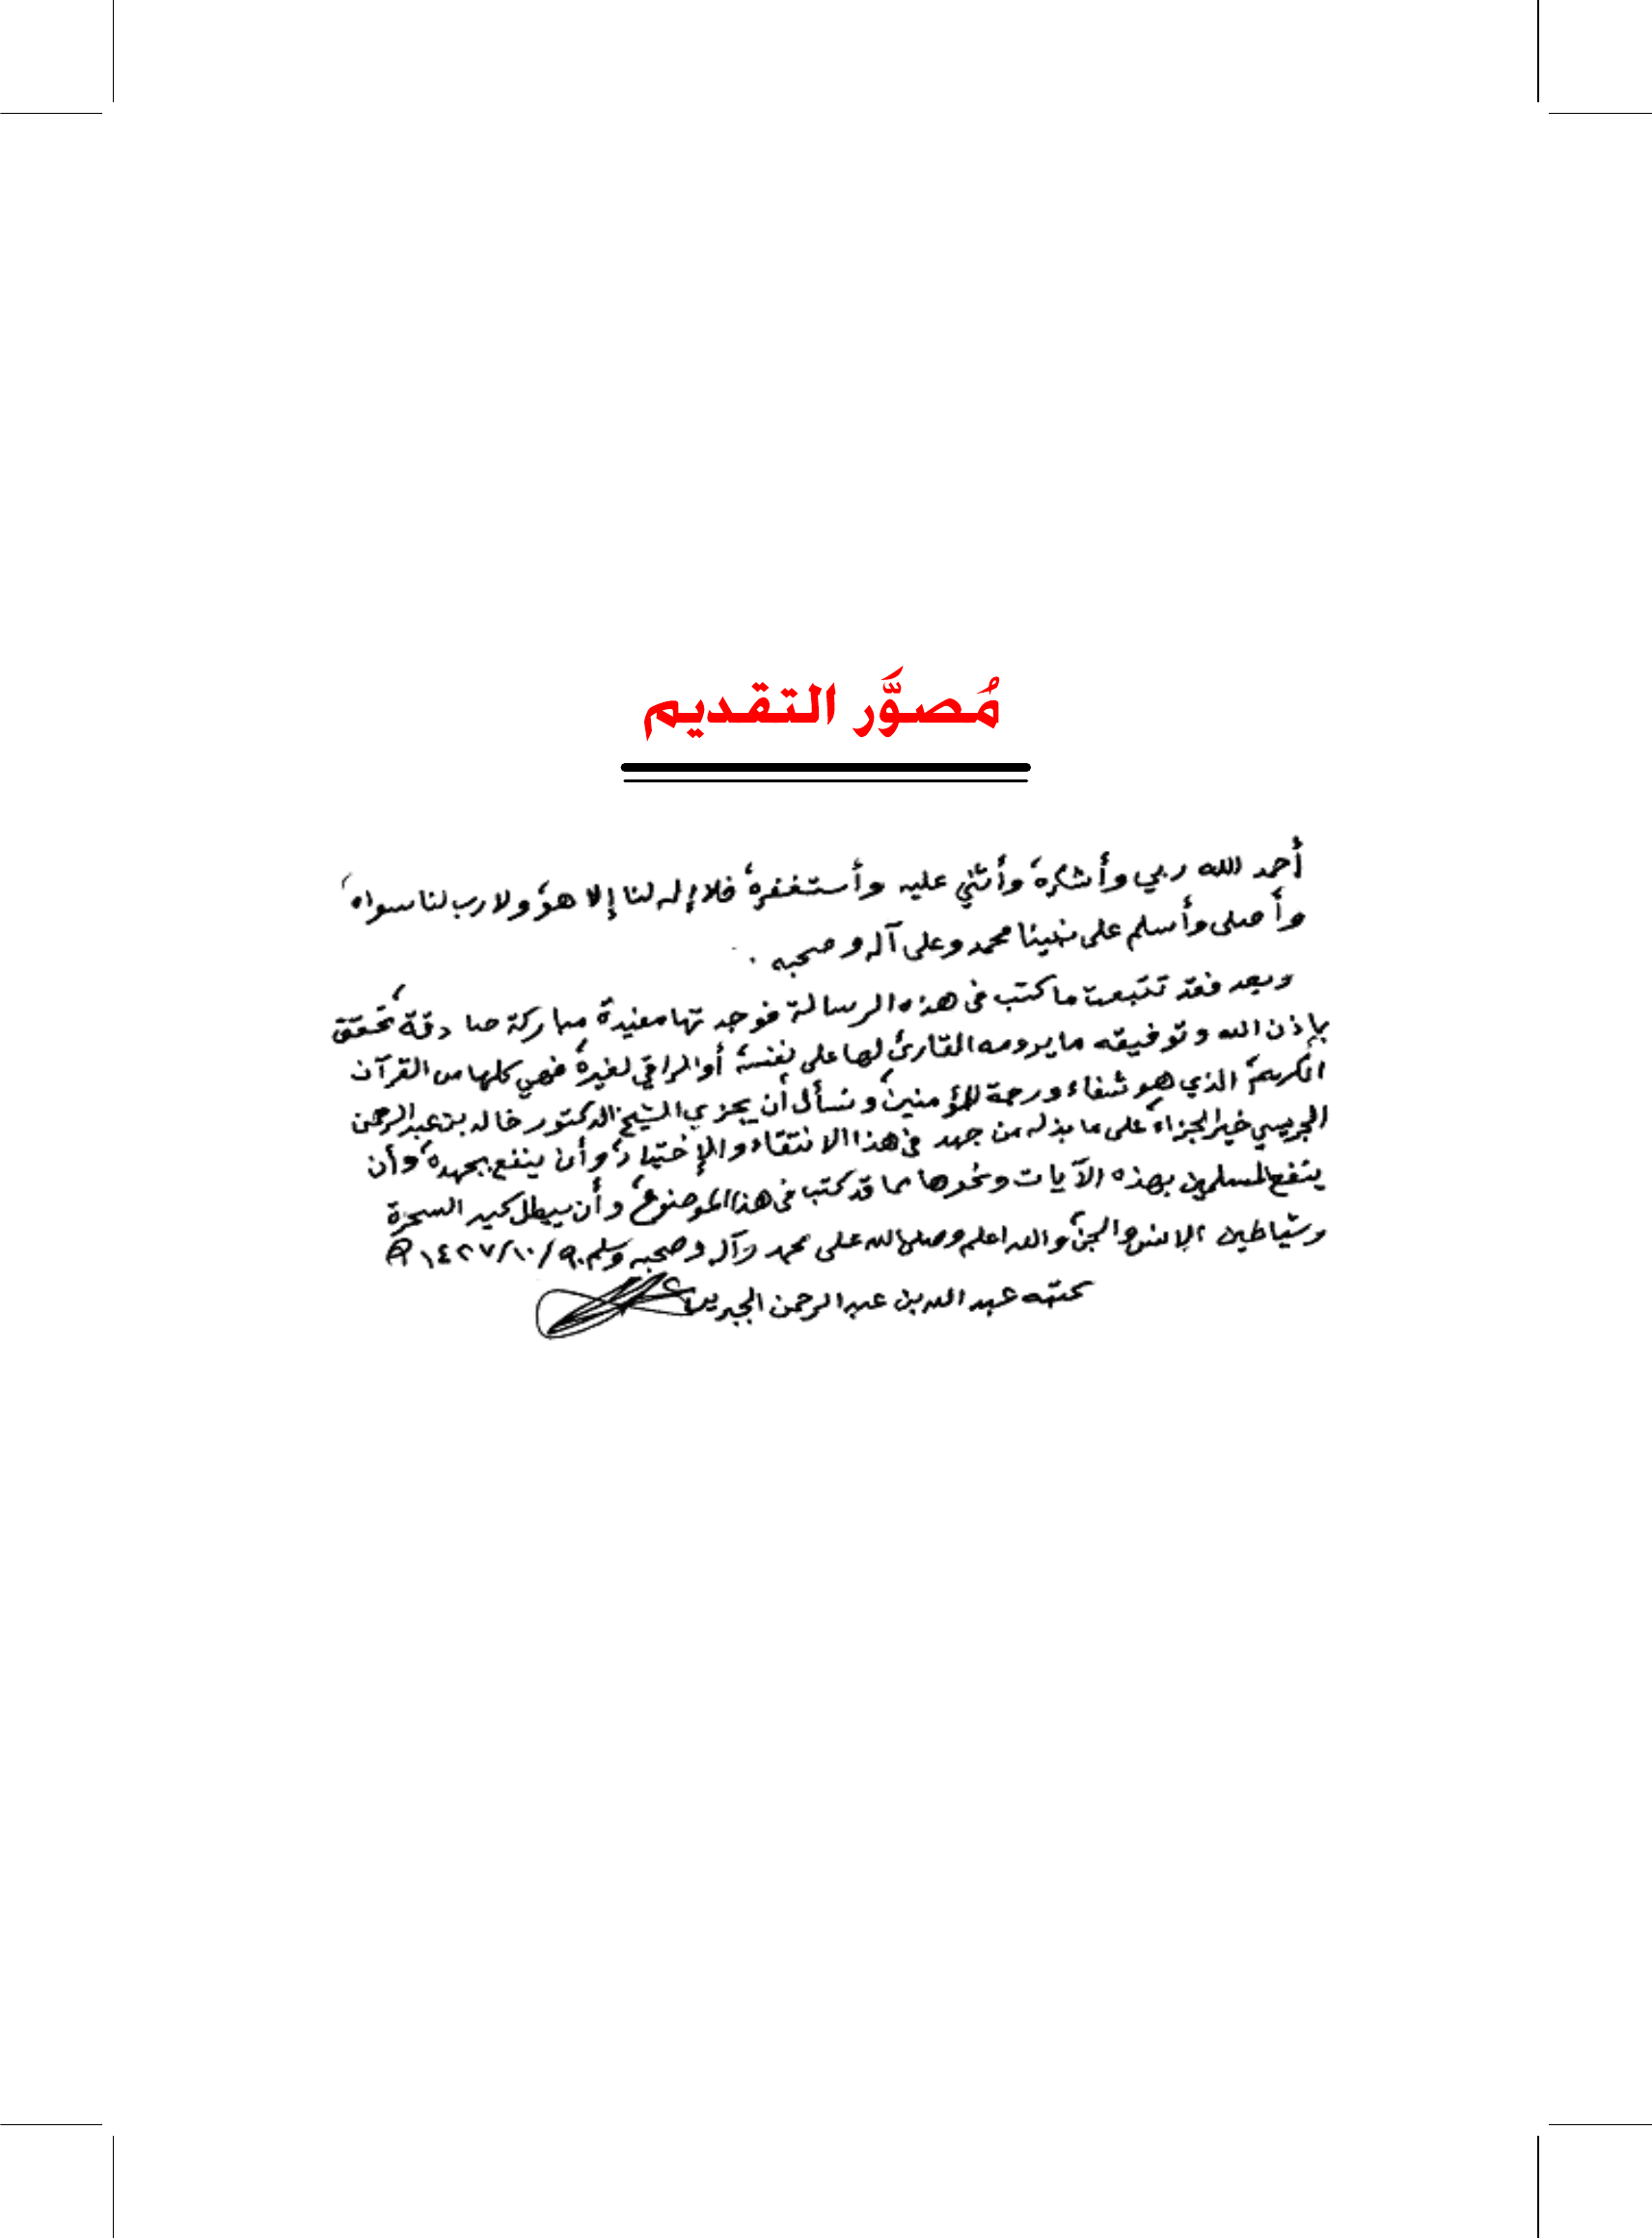 مُصوَّر التقديم
أحمد الله ربي وأشكره، وأثني عليه وأستغفره، فلا إله لنا إلا هو، ولا رب لنا سواه،
وأصلي وأسلم على نبينا محمد وعلى آله وصحبه .
وبعد فقد تتبعت ما كتب في هذه الرسالة فوجدتها مفيدة مباركة صادقة، تحقق
بإذن الله وتوفيقه ما يرومه القارئ لها على نفسه، أو الراقي لغيره، فهي كلها من القرآن
الكريم، الذي هو شفاء ورحمة للمؤمنين، ونسأل أن يجزي الشيخ الدكتور خالد بن عبد الرحمن
الجريسي خير الجزاء، على ما بذله من جهد في هذا الانتقاء والإختيار، وأن ينفع بجهده، وأن
ينفع المسلمين بهذه الآيات ونحوها مما قد كتب في هذا الموضوع، وأن يبطل كيد السحرة
وشياطين الإنس والجن، والله اعلم وصلى الله على محمد وآله وصحبه وسلم. ٩/١٠/١٤٢٧ه
كتبه عبد الله بن عبد الرحمن الجبرين